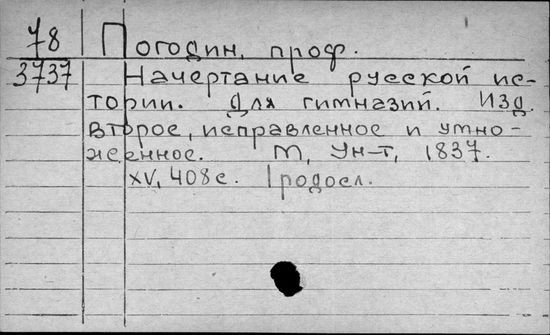 78 Погодин, проф.
3737 Начертание русской ис-
тории. Для гимназий. Изд.
второе, исправленное и умно-
женное. М, Ун-т, 1837.
XV, 408 с. 1 родосл.